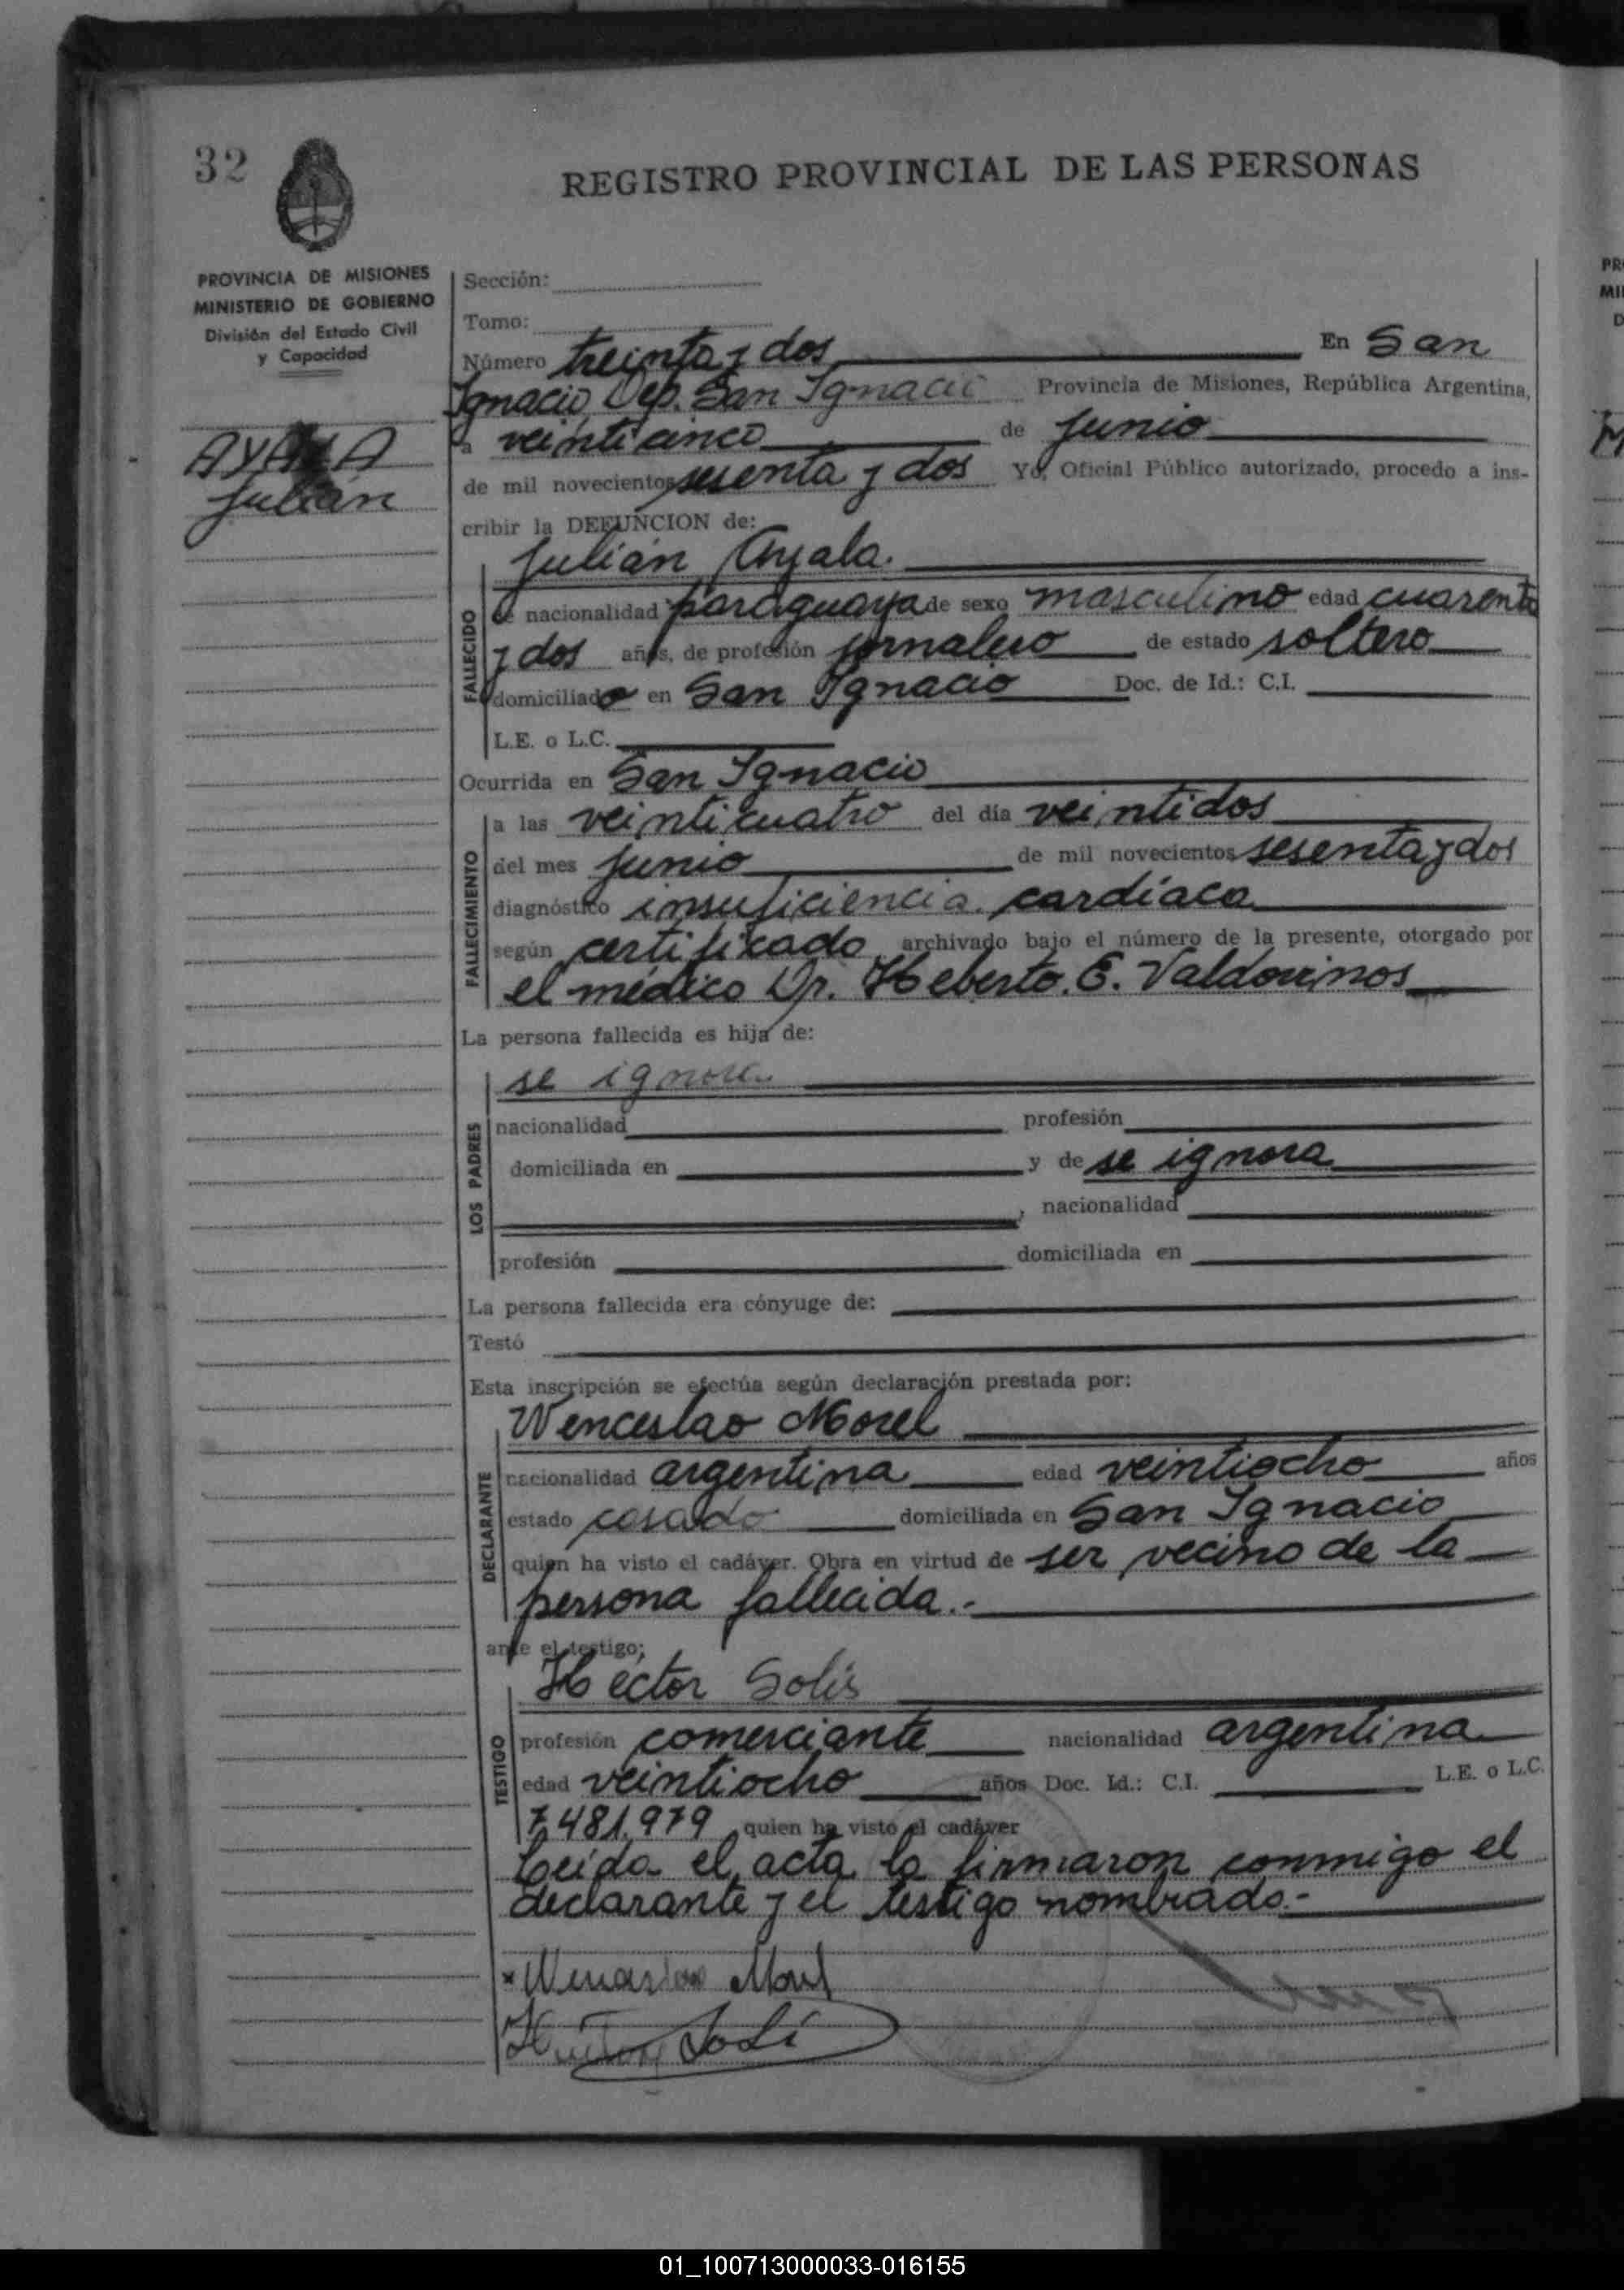 32
REGISTRO PROVINCIAL DE LAS PERSONAS
PROVINCIA DE MISIONES
MINISTERIO DE GOBIERNO
División del Estado Civil
y Capacidad
AYALA
Julián
Sección:
Tomo:
Número treinta y dos En San
Ignacio, Dep. San Ignacio Provincia de Misiones, República Argentina,
a veinticinco de junio
de mil novecientos sesenta y dos Yo, Oficial Público autorizado, procedo a ins-
cribir la DEFUNCION de:
Julián Ayala.
FALLECIDO
de nacionalidad paraguaya de sexo masculino edad cuarenta
y dos años, de profesión jornalero de estado soltero
domiciliado en San Ignacio Doc. de Id.: C.I.
L.E. o L.C.
Ocurrida en San Ignacio
FALLECIMIENTO
a las veinticuatro del día veintidos
del mes junio de mil novecientos sesenta y dos
diagnóstico insuficiencia cardíaca
según certificado archivado bajo el número de la presente, otorgado por
el médico Dr. Heberto. E. Valdovinos
La persona fallecida es hija de:
LOS PADRES
se ignora
nacionalidad profesión
domiciliada en y de se ignora
, nacionalidad
profesión domiciliada en
La persona fallecida era cónyuge de:
Testó
Esta inscripción se efectúa según declaración prestada por:
DECLARANTE
Wenceslao Morel
nacionalidad argentina edad veintiocho años
estado casado domiciliada en San Ignacio
quien ha visto el cadáver. Obra en virtud de ser vecino de la
persona fallecida.-
ante el testigo;
TESTIGO
Héctor Solís
profesión comerciante nacionalidad argentina
edad veintiocho años Doc. Id.: C.I. L.E. o L.C.
7.481.979 quien ha visto el cadáver
Leída el acta la firmaron conmigo el
declarante y el testigo nombrado.-
x Wenceslao Morel
Héctor Solí
01_100713000033-016155